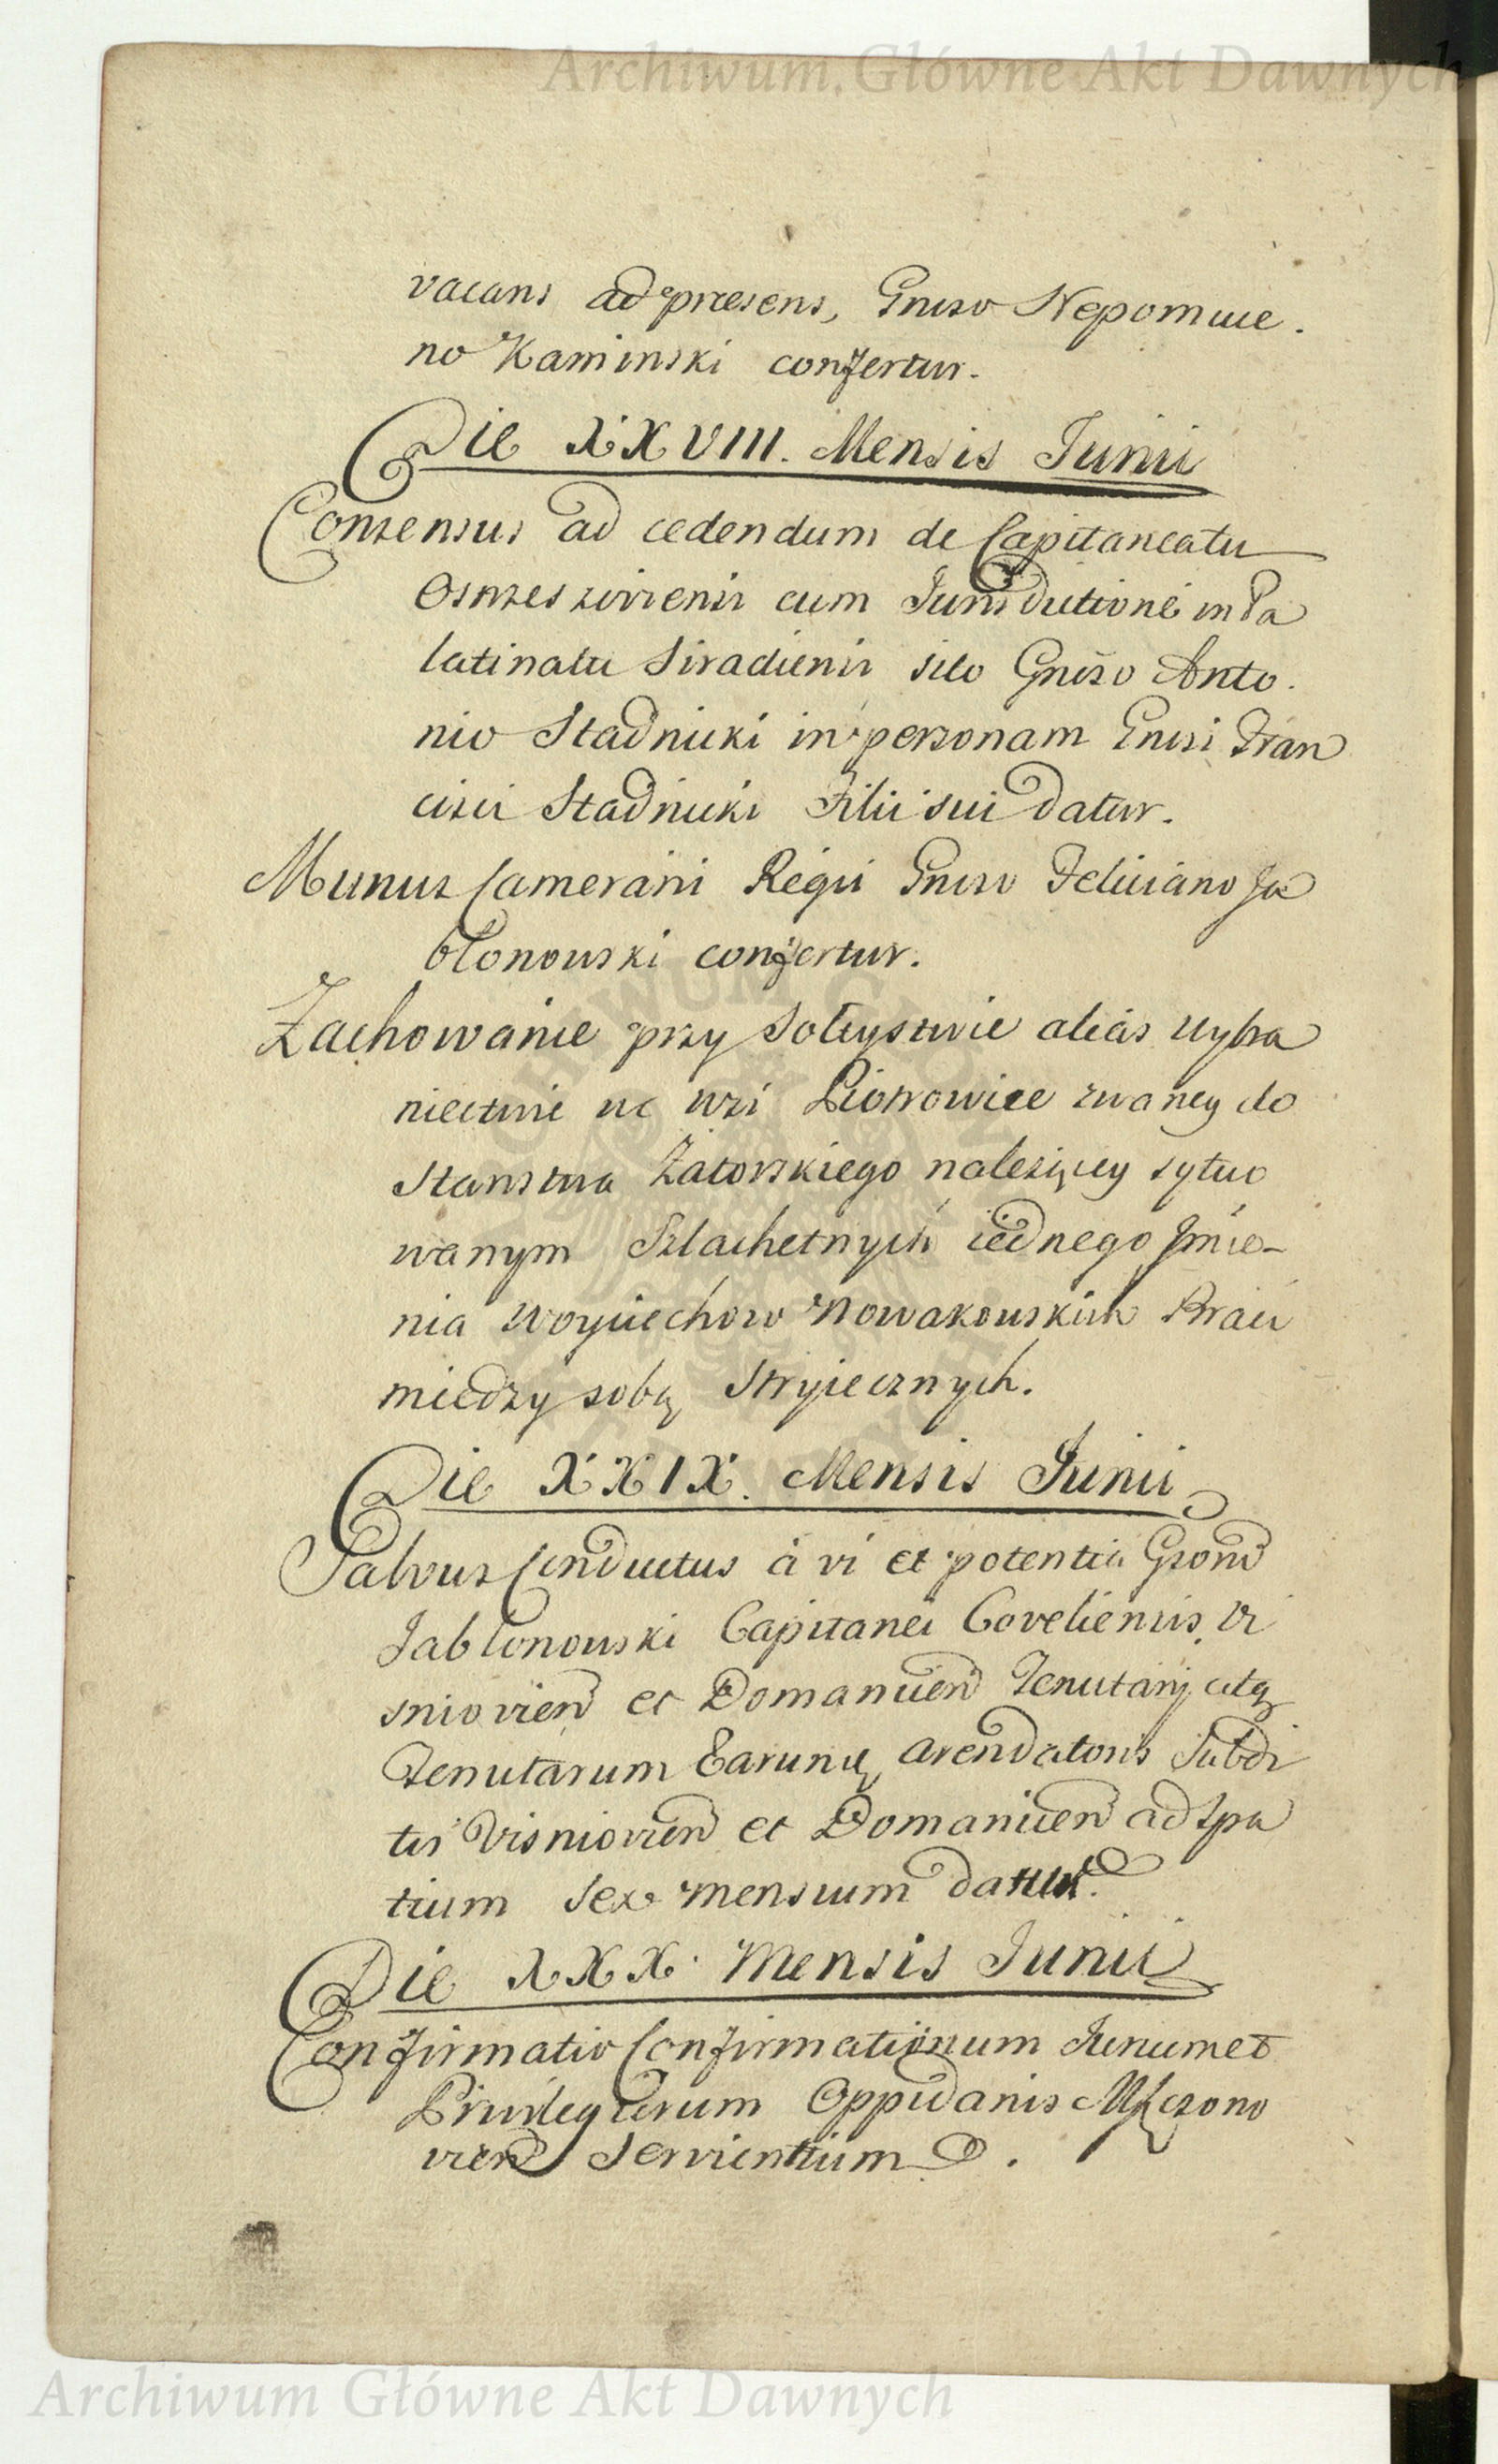 Archiwum Główne Akt Dawnych
vacans ad præsens, Gnoso Nepomuce.
no Kaminski confertur.
Die XXVIII. Mensis Junii
Consensus ad cedendum de Capitaneatu
cum Jurisdictione in Pa
latinatu Siradiensi sito Gnoso Anto.
nio Stadnicki in personam Gnosi Fran
cisci Stadnicki Filii sui datur.
Munus Camerarii Regii Gnoso Feliciano Ja
błonowski confertur.
Zachowanie przy Sołtystwie alias wybra
niectwie we wsi Piotrowice zwaney do
Starostwa Zatorskiego należącey sytuo
wanym Szlachetnych iednego Jmie-
nia Woyciechow Nowakowskich Braci
między sobą Stryiecznych.
Die XXIX. Mensis Junii
Salvus Conductus à vi et potentia Gson̄
Jabłonowski Capitanei Coveliensis, Vi
sniovien̄ et Domanicen̄ Tenutarij atq
Tenutarum Earunq, arendatoris Subdi
tis Visniovien̄ et Domanicen̄ ad spa
tium sex mensium datur.
Die XXX. Mensis Junii
Confirmatio Confirmationum Jurium et
Privilegiorum Oppidanis Mszczono
vien̄ Servientium.
Archiwum Główne Akt Dawnych